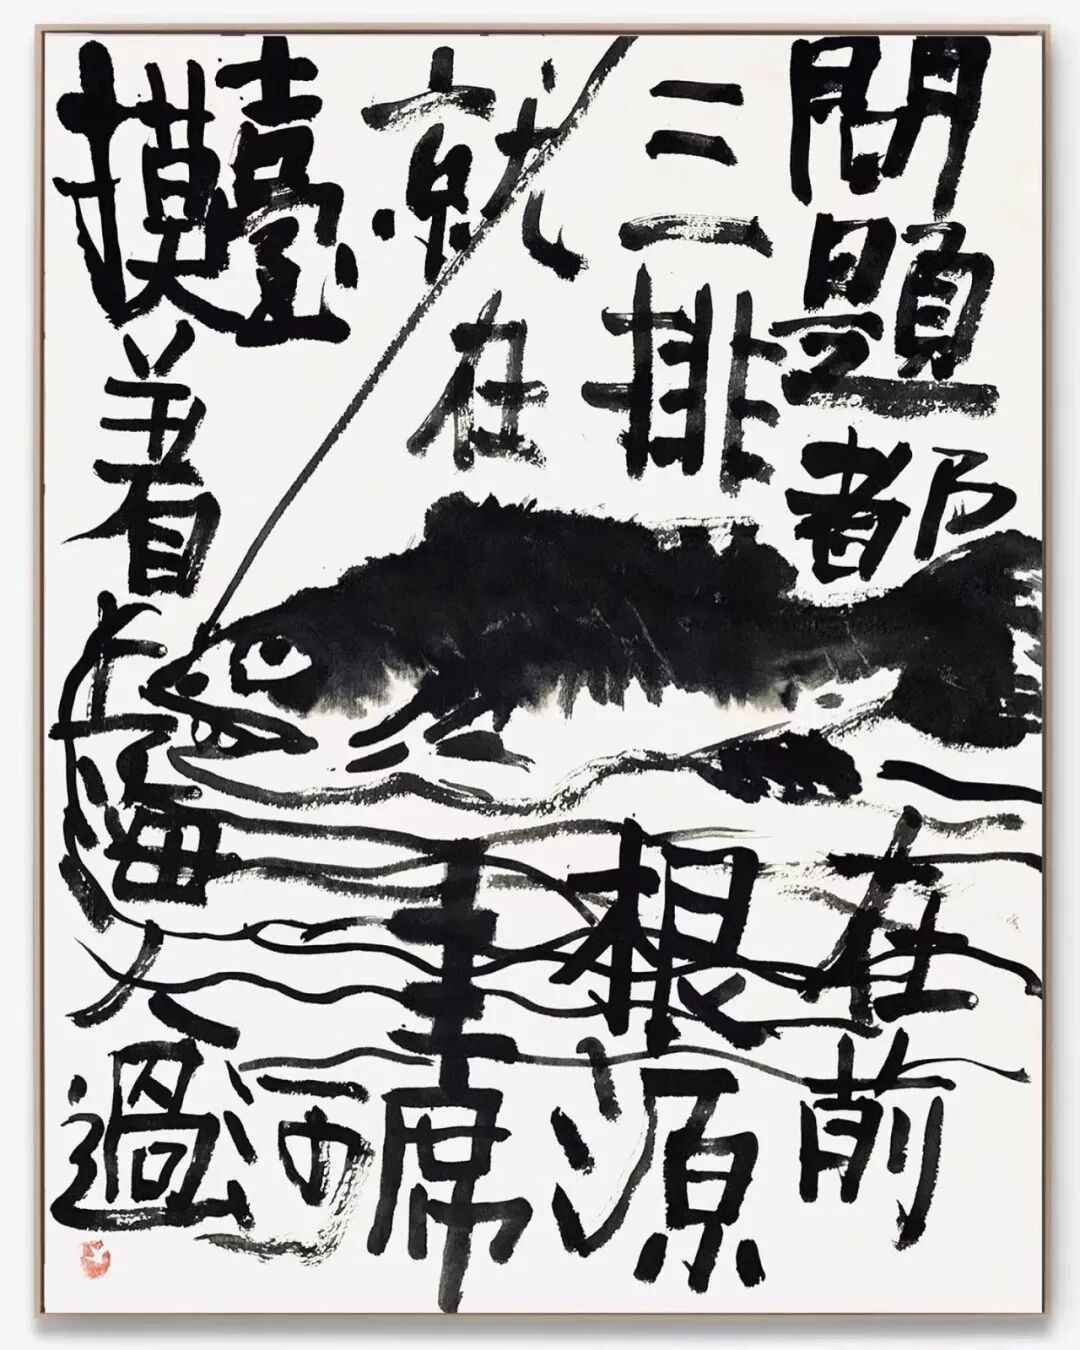 問題都在前
三排根源
就在主席
臺
摸着上海人過河